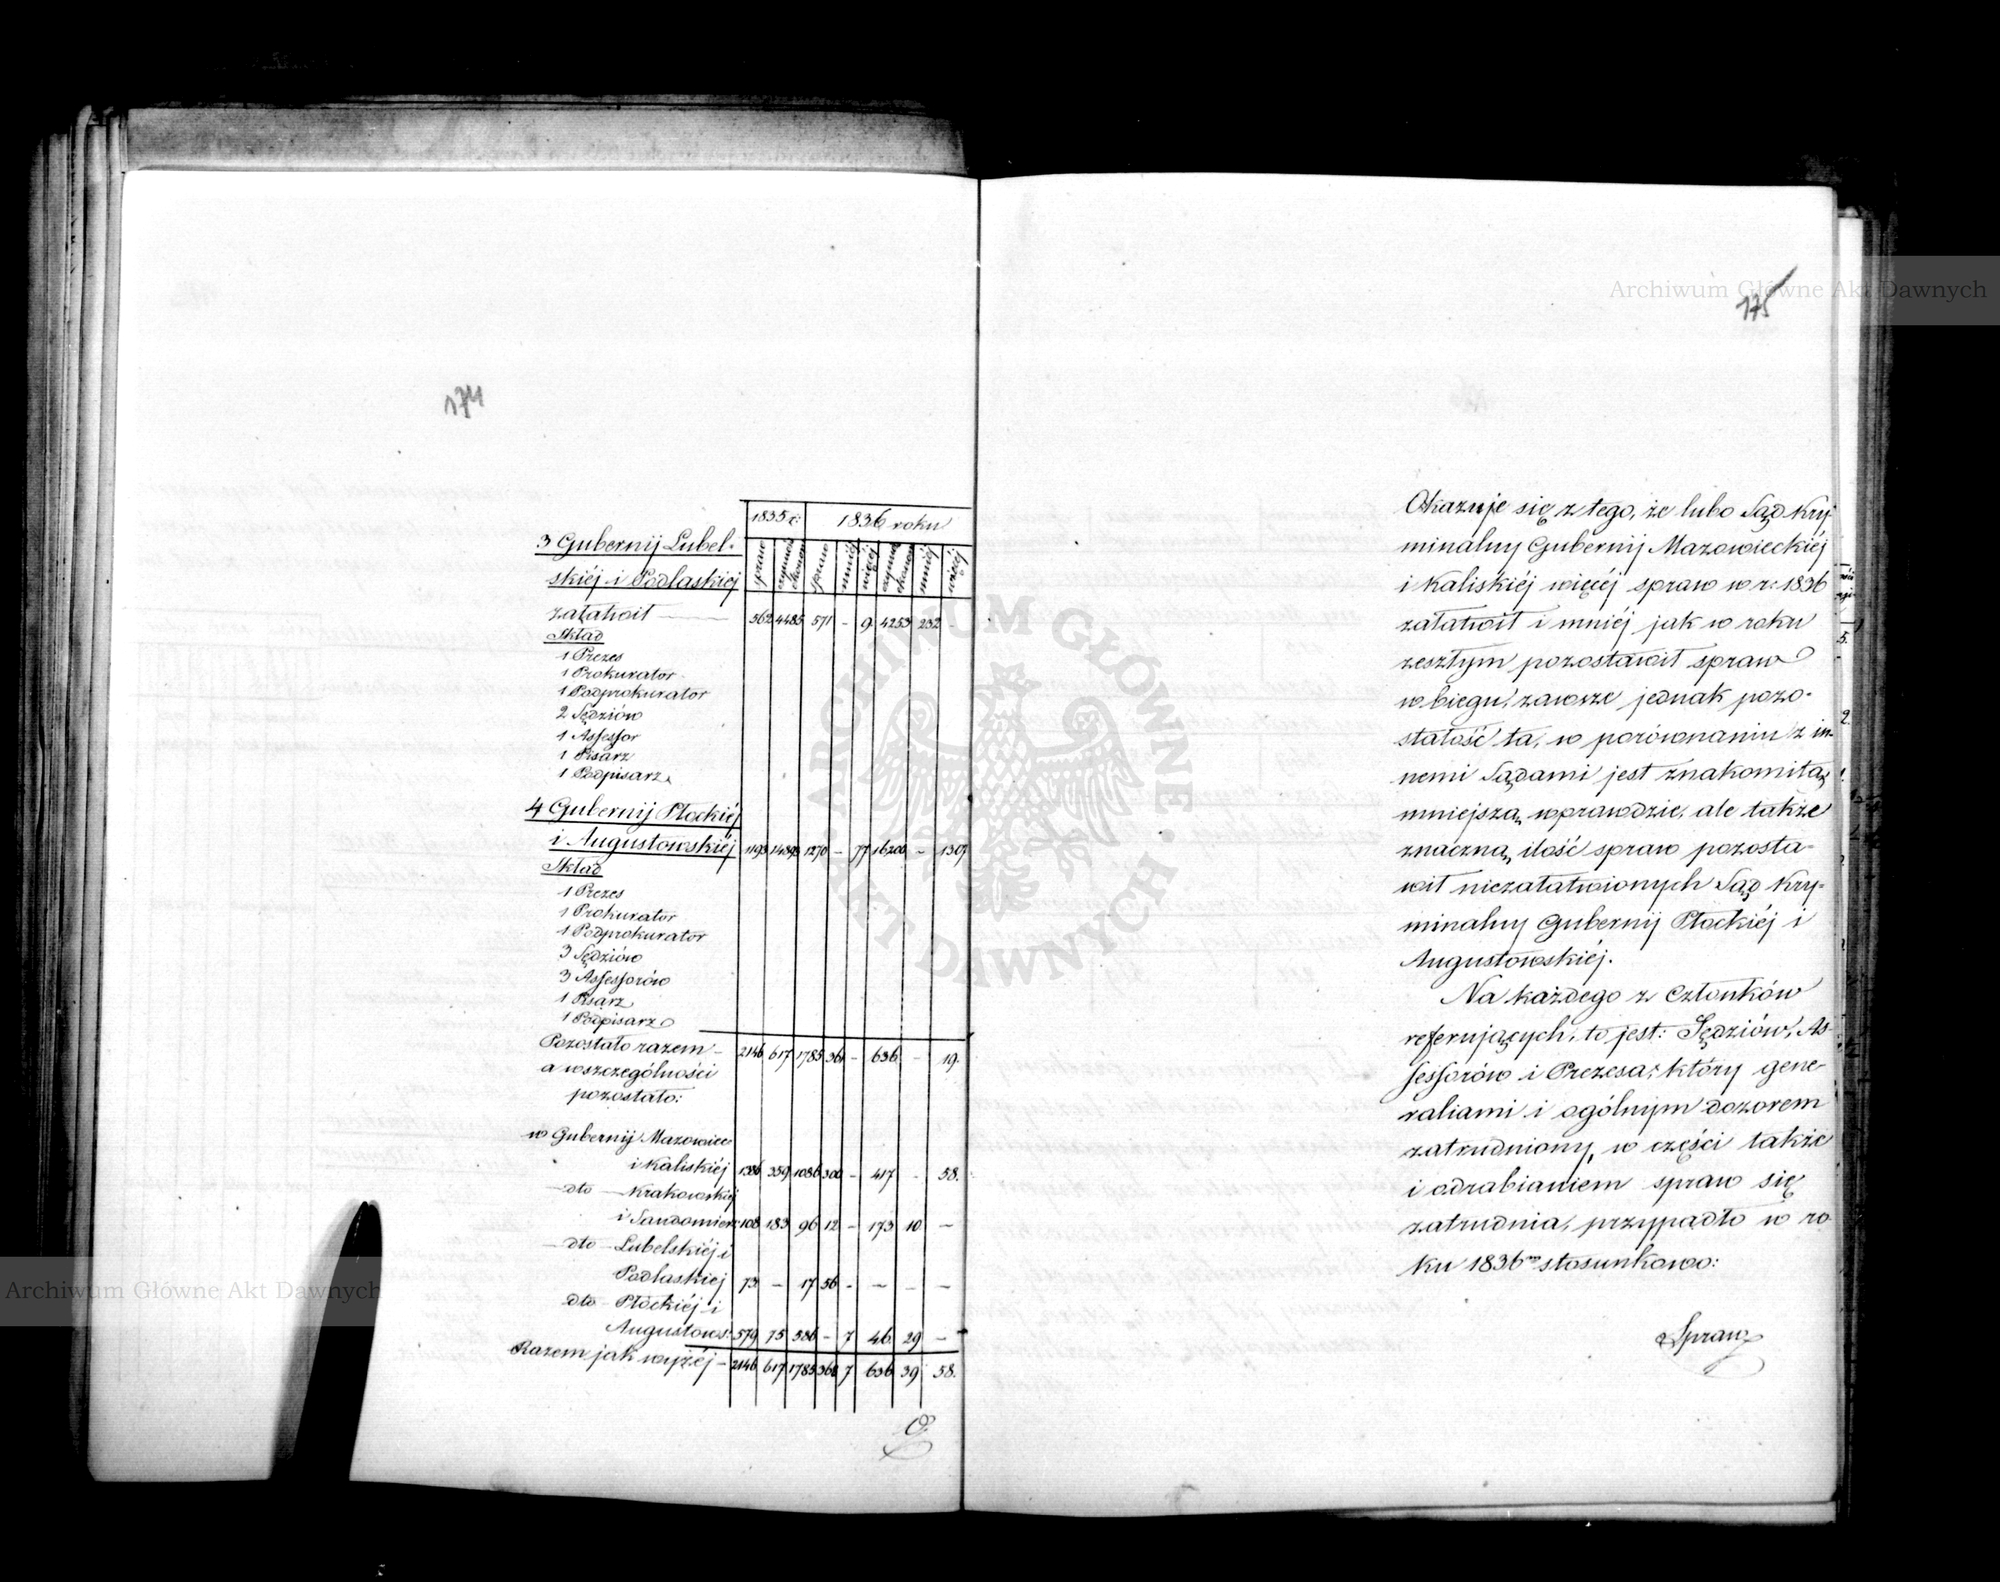 174
1835 r. 1836 roku
3 Gubernij Lubel-
skiéj i Podlaskiej
spraw czynności spraw mniéj więcéj mniéj więcéj
załatwił 562 4485 571 - 9 4253 232 -
Skład
1 Prezes
1 Prokurator
1 Podprokurator
2 Sędziów
1 Assessor
1 Pisarz
1 Podpisarz
4 Gubernij Płockiéj
i Augustowskiéj 1193 14893 1270 - 77 16200 - 1307
Skład
1 Prezes
1 Prokurator
1 Podprokurator
3 Sędziów
3 Assessorów
1 Pisarz
1 Podpisarz
Pozostało razem - 2146 617 1785 361 - 636 - 19.
a w szczególności
pozostało:
w Gubernij Mazowiec
i Kaliskiéj 1386 359 1086 300 - 417 - 58.
- dto - Krakowskiéj
i Sandomiers 108 183 96 12 - 173 10 -
- dto - Lubelskiéj i
Podlaskiej 73 - 17 56 - - - -
dto - Płockiéj i
Augustows: 579 75 586 - 7 46 29 -
Razem jak wyżéj - 2146 617 1785 368 7 636 39 58.
175
Okazuje się z tego, że lubo Sąd Kry-
minalny Gubernij Mazowieckiéj
i Kaliskiéj więcéj spraw w r. 1836
załatwił i mniéj jak w roku
zeszłym pozostawił spraw
w biegu, zawsze jednak pozo-
stałość ta, w porównaniu z in-
nemi Sądami jest znakomitą,
mniejszą, wprawdzie, ale także
znaczną, ilość spraw pozosta-
wił niezałatwionych Sąd Kry-
minalny Gubernij Płockiéj i
Augustowskiéj.
Na każdego z Członków
referujących, to jest: Sędziów, As-
sessorów i Prezesa, który gene-
raliami i ogólnym dozorem
zatrudniony, w części także
i odrabianiem spraw się
zatrudnia, przypadło w ro-
ku 1836 m stosunkowo:
Spraw
Archiwum Główne Akt Dawnych
Archiwum Główne Akt Dawnych
ARCHIWUM GŁÓWNE · AKT DAWNYCH ·